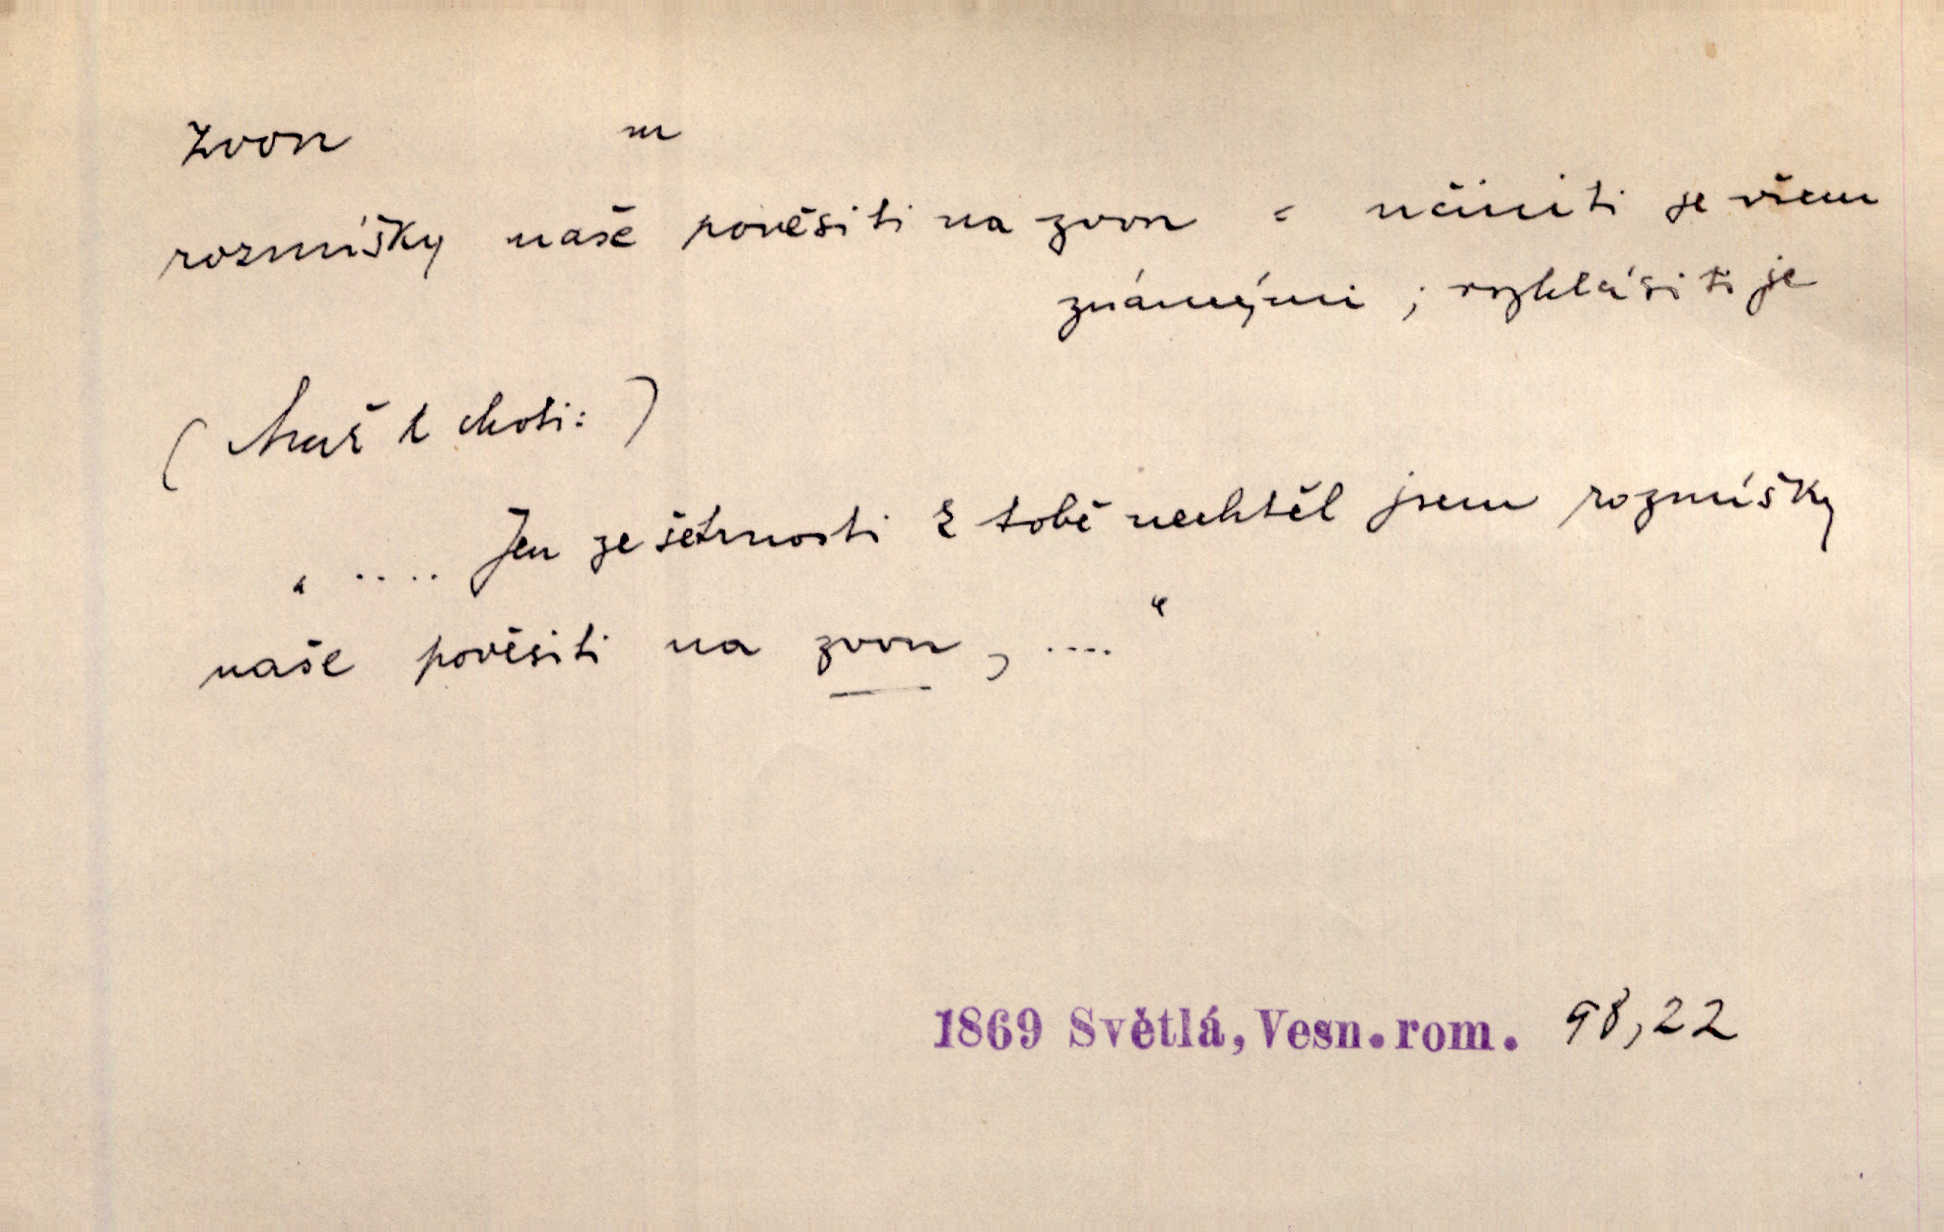 Zvon m
rozmíšky naše pověsiti na zvon = učiniti je všem
známými ; rozhlásiti je
( Muž k choti: )
" .... Jen ze šetrnosti k tobě nechtěl jsem rozmíšky
naše pověsiti na zvon , .... "
1869 Světlá, Vesn. rom. 98,22